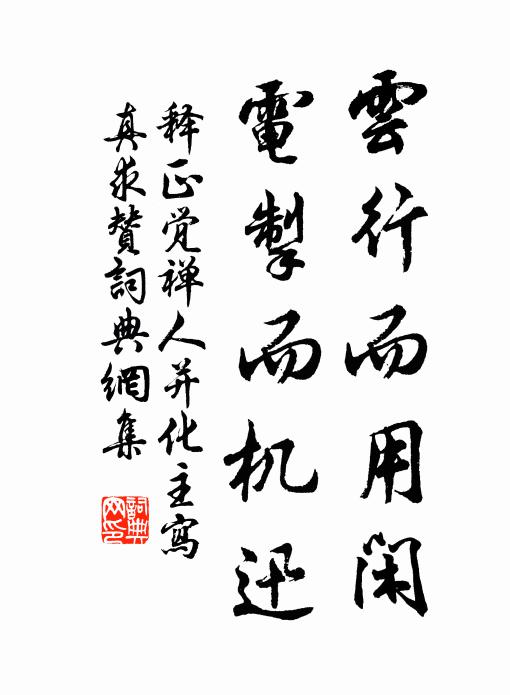 雲行而用閑
電掣而机迅
释正觉禅人并化主寫
真求賛詞典網集
詞典
网印